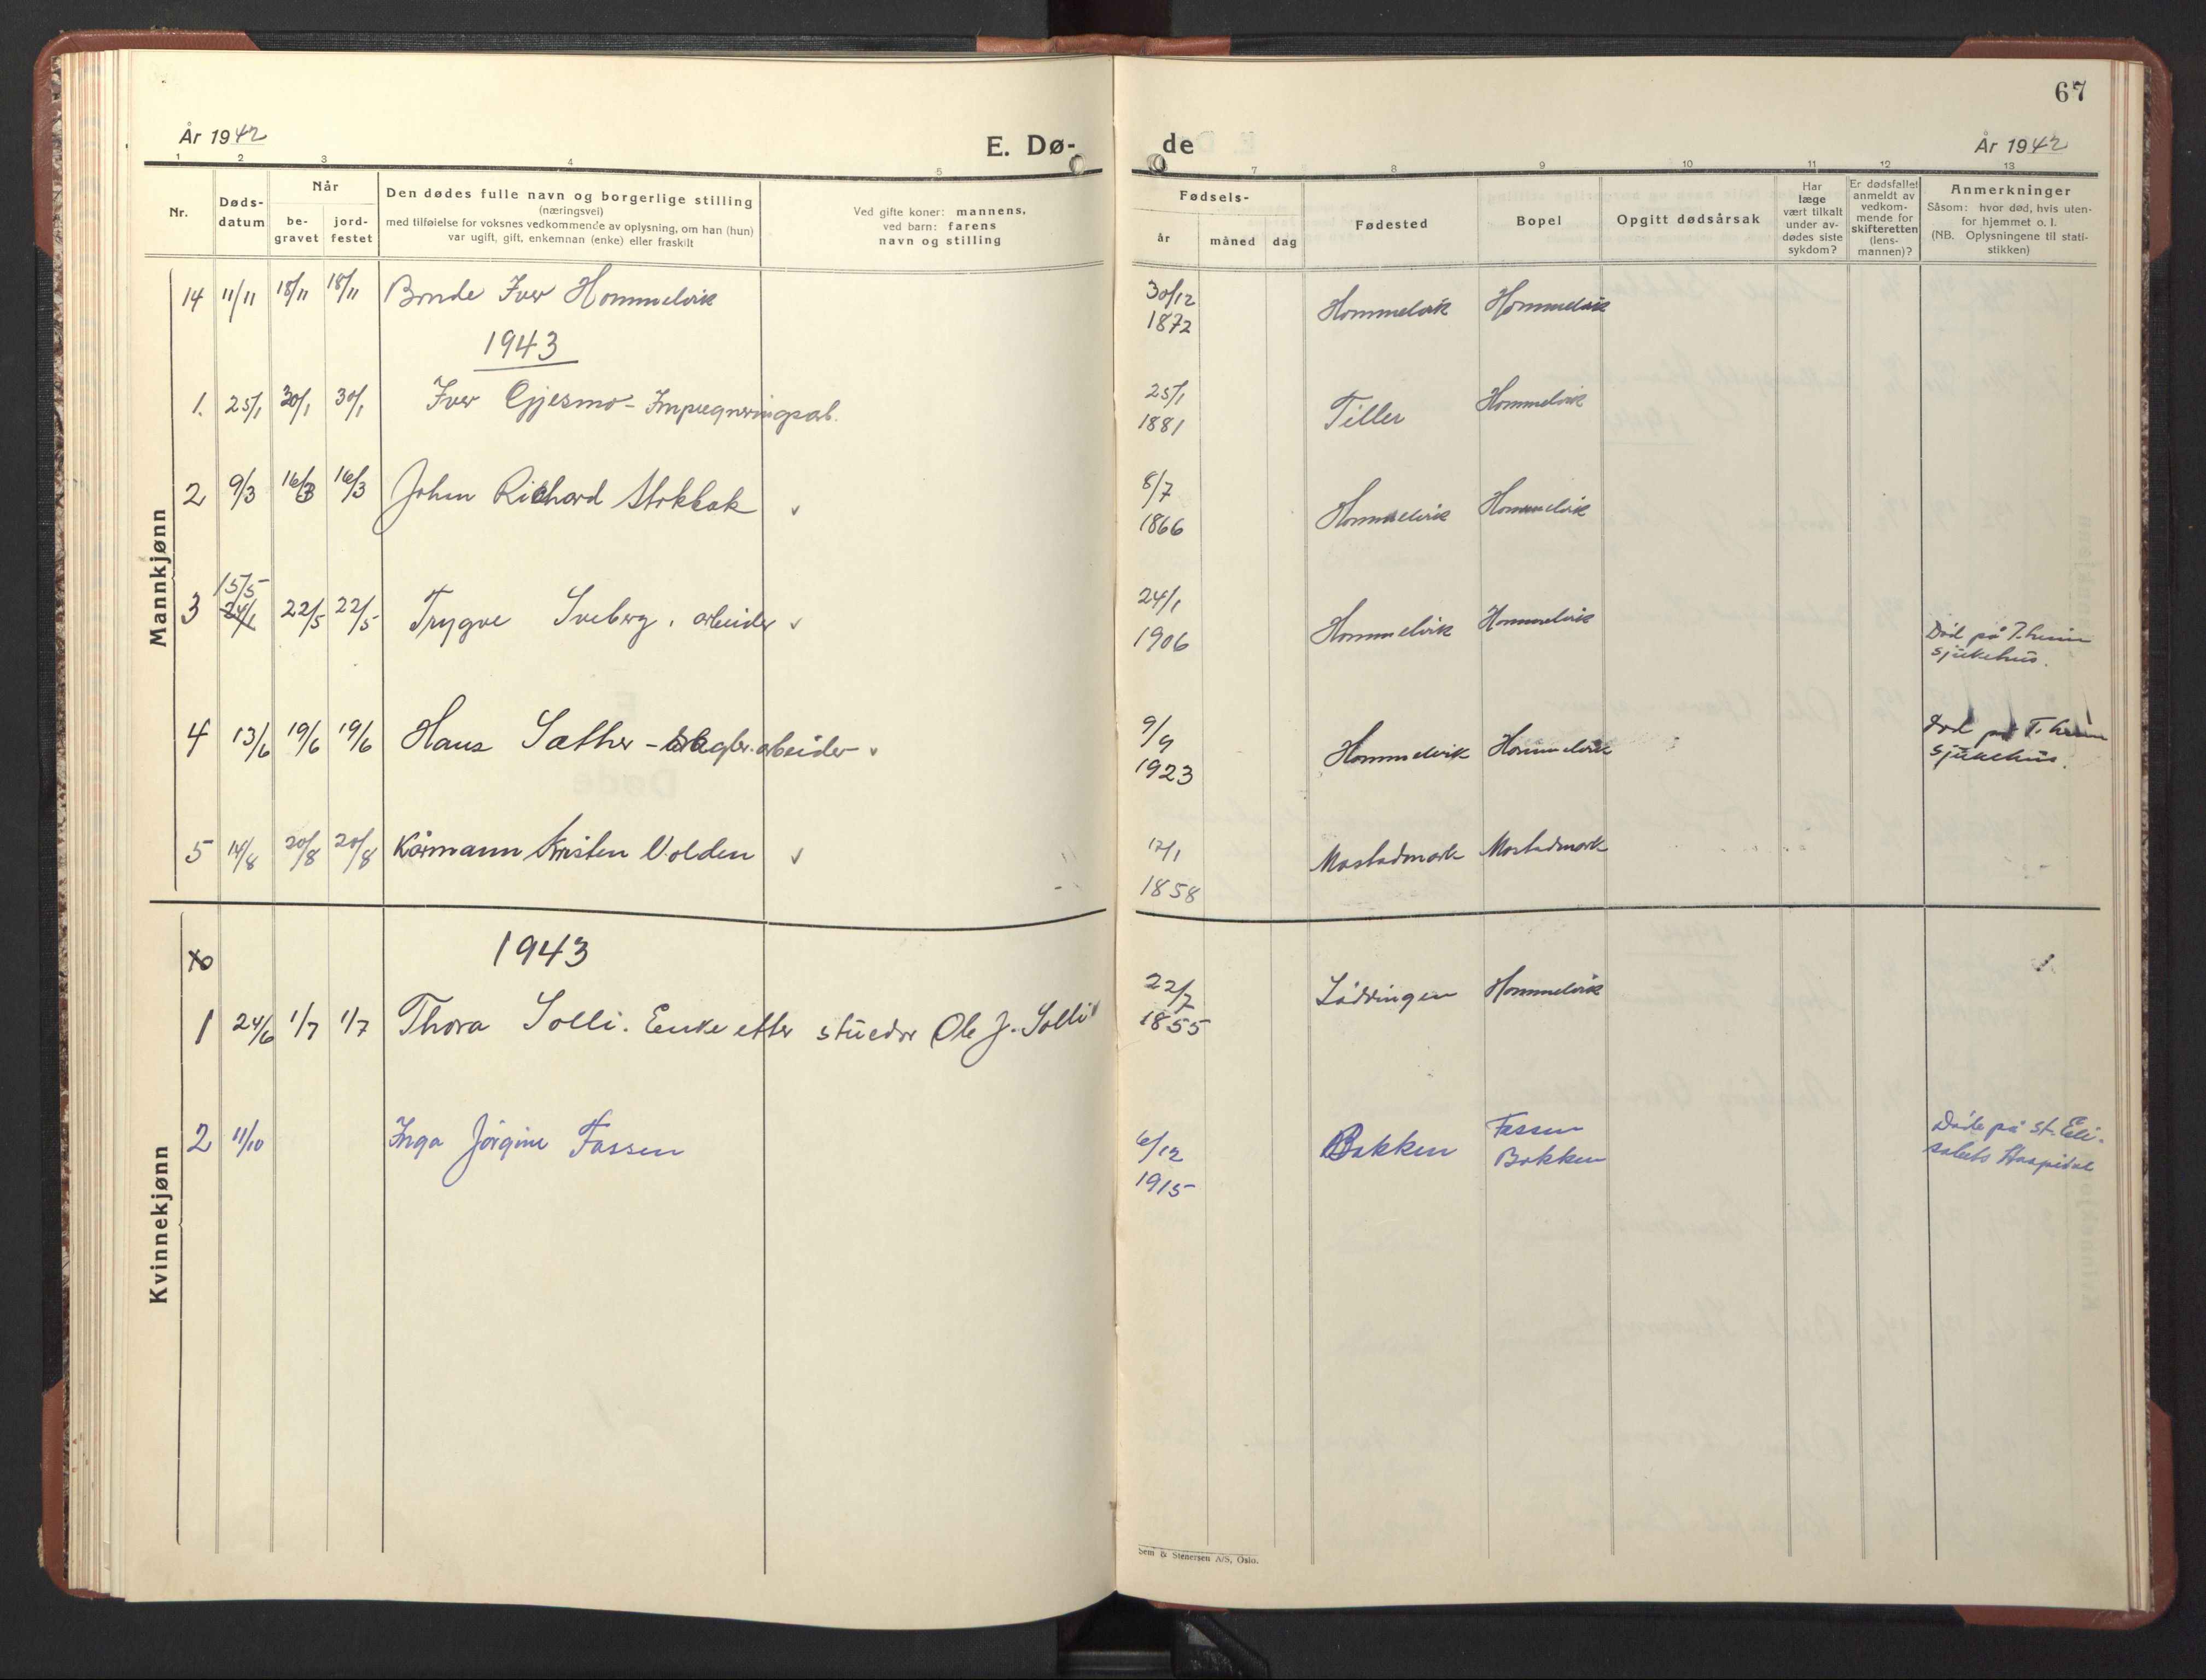 67
År 1942
E. Dø-
de
År 1942
1 2 3 4 5 7 8 9 10 11 12 13
Nr.
Døds-
datum
Når
be-
gravet
jord-
festet
Den dødes fulle navn og borgerlige stilling
(næringsvei)
med tilføielse for voksnes vedkommende av oplysning, om han (hun)
var ugift, gift, enkemnan (enke) eller fraskilt
Ved gifte koner: mannens,
ved barn: farens
navn og stilling
Fødsels-
år
måned
dag
Fødested
Bopel
Opgitt dødsårsak
Har
læge
vært tilkalt
under av-
dødes siste
sykdom?
Er dødsfallet
anmeldt av
vedkom-
mende for
skifteretten
(lens-
mannen)?
Anmerkninger
Såsom: hvor død, hvis uten-
for hjemmet o. l.
(NB. Oplysningene til stati-
stikken)
Mannkjønn
14 11/11 18/11 18/11 Bonde Iver Hommelvik 30/12 1872 Hommelvik Hommelvik
1943
1. 25/1 30/1 30/1 Iver Gjesmo - Impregneringsarb. 25/1 1881 Tiller Hommelvik
2 9/3 16/3 16/3 John Richard Stokbak 8/7 1866 Hommelvik Hommelvik
3 15/5 24/1 22/5 22/5 Trygve Sveberg, arbeider 24/1 1906 Hommelvik Hommelvik Død på T.heim
sjukehus.
4 13/6 19/6 19/6 Hans Sæther - arbeider 9/9 1923 Hommelvik Hommelvik Død på T.heim
sjukehus.
5 14/8 20/8 20/8 Kårmann Kristen Volden 12/1 1858 Mostadmark Mostadmark
Kvinnekjønn
1943
1 24/6 1/7 1/7 Thora Solli. Enke etter stuedor Ole J. Solli 22/7 1855 Lödringen Hommelvik
2 11/10 Inga Jörgine Fossen 6/12 1915 Bakken Fossen
Bakken
Døde på St. Eli-
sabets Hospital
Sem & Stenersen A/S, Oslo.